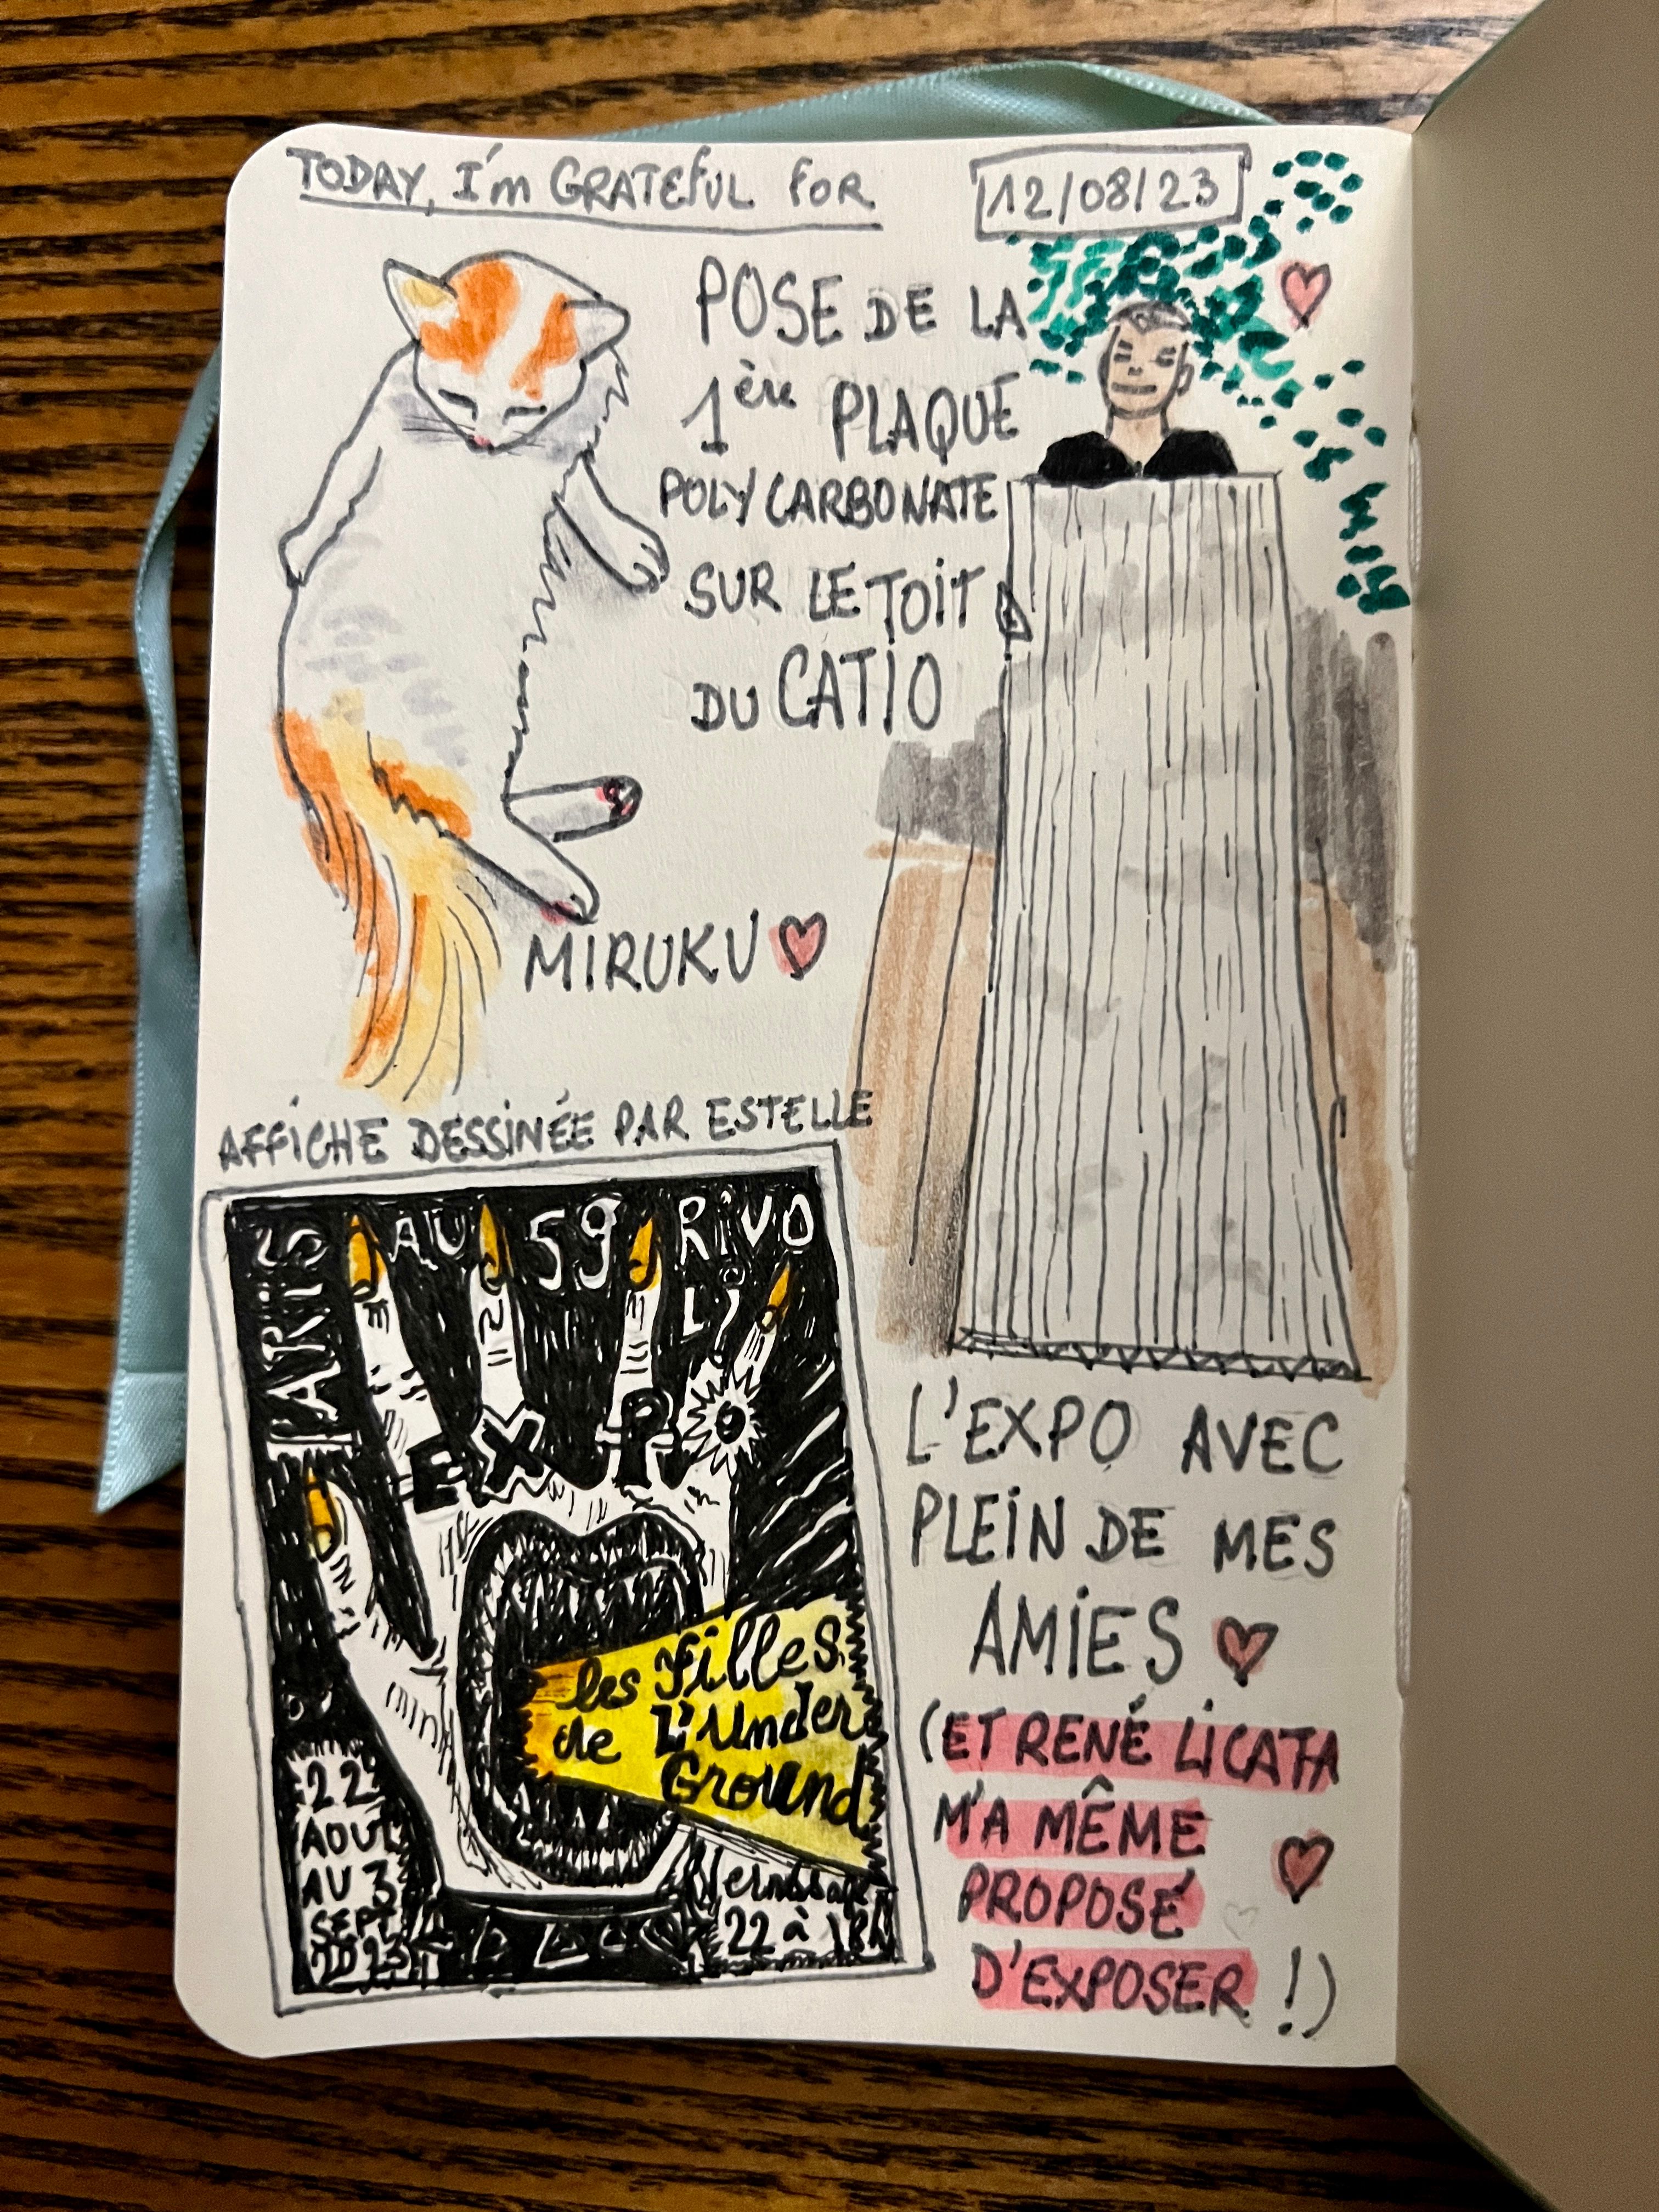 TODAY, I'm GRATEFUL FOR
12/08/23
POSE DE LA
1ère PLAQUE
POLYCARBONATE
SUR LE TOIT
DU CATIO
MIRUKU
AFFICHE DESSINÉE PAR ESTELLE
PARIS
AU 59 RIVO
LI
EXPO
les filles
de L'Under
Ground
22
AOUT
AU 3
SEPT
2023
Vernissage
22 à 18h
L'EXPO AVEC
PLEIN DE MES
AMIES
(ET RENÉ LICATA
M'A MÊME
PROPOSÉ
D'EXPOSER !)